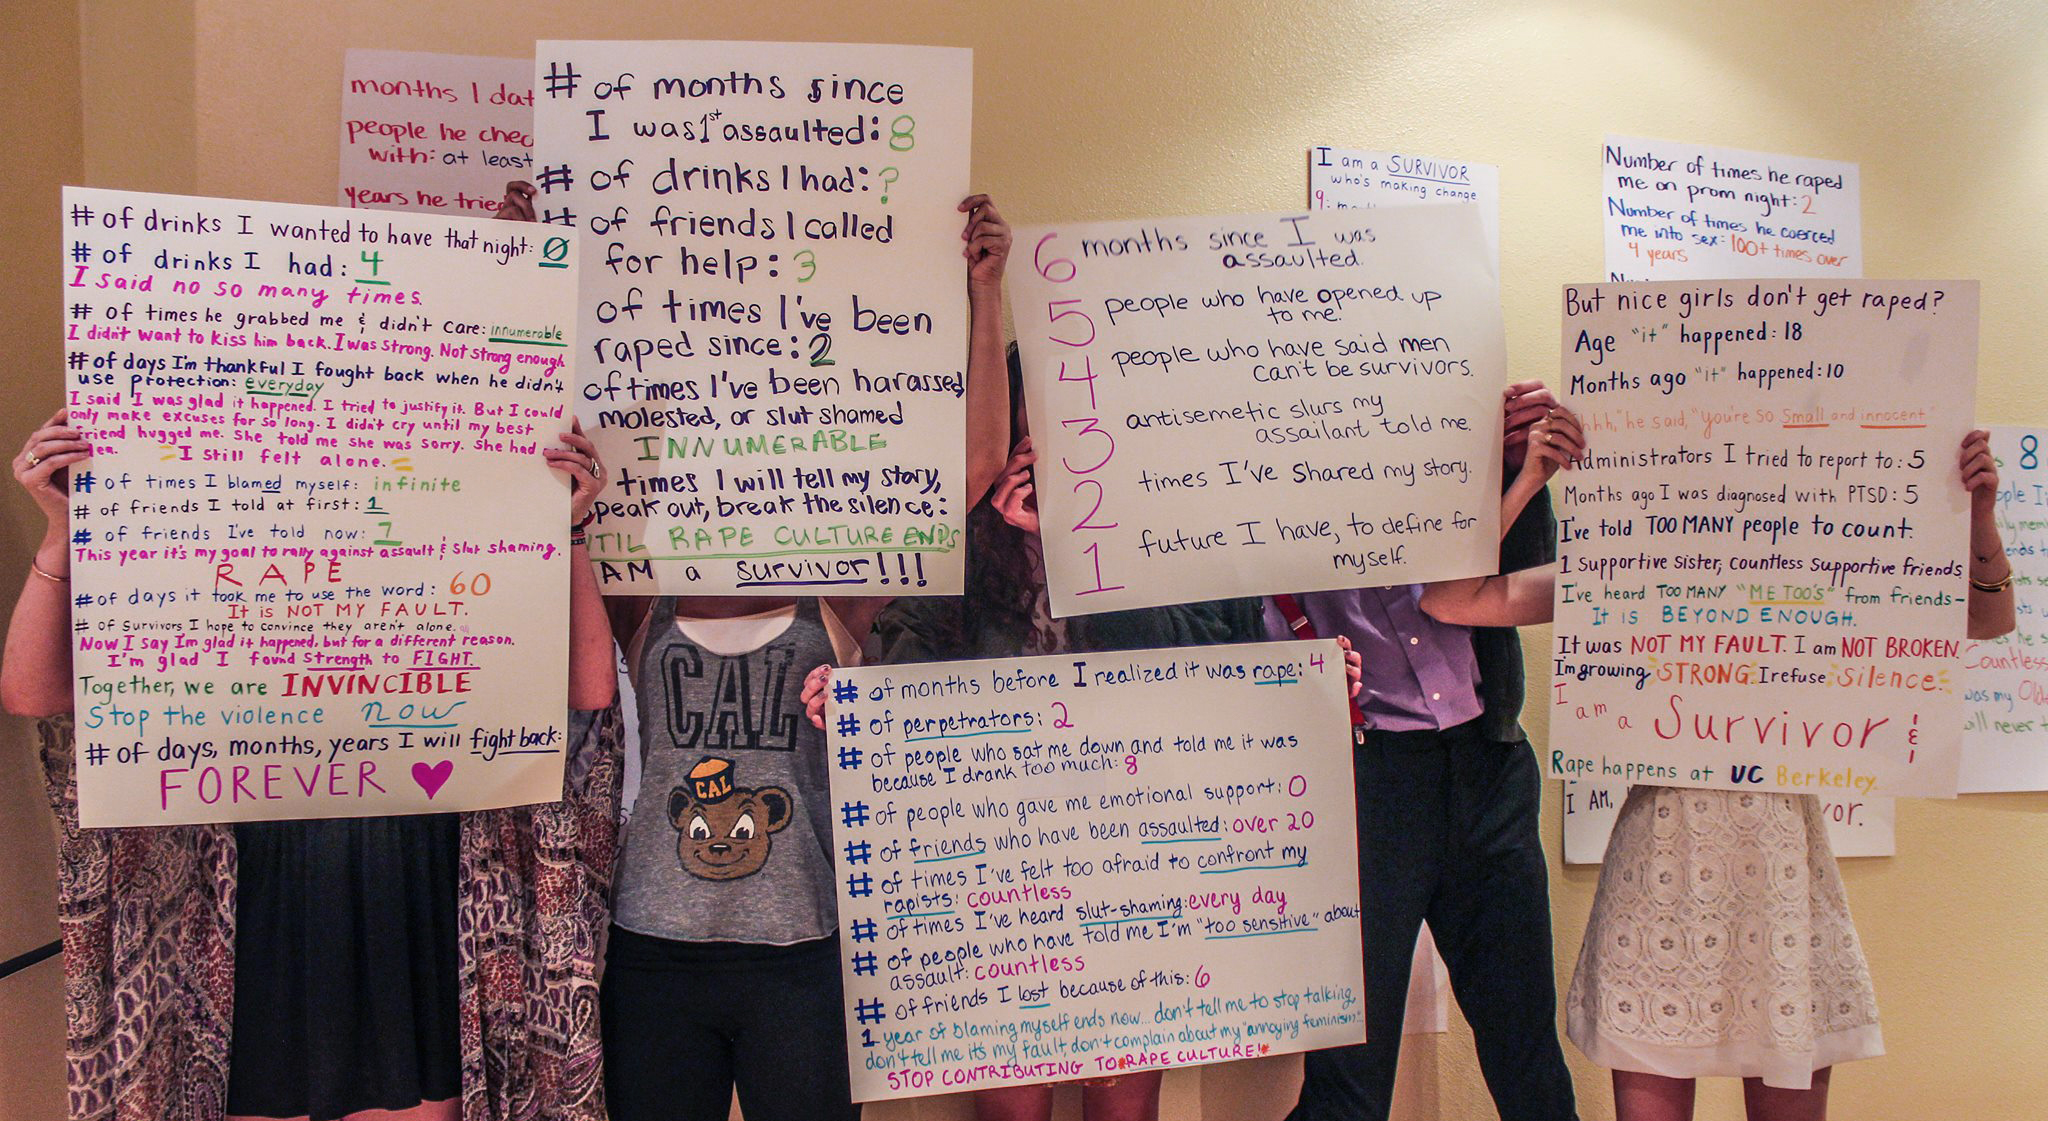 months I dat
people he chec
with: at least
years he tried
# of drinks I wanted to have that night: 0
# of drinks I had: 4
I said no so many times.
# of times he grabbed me & didn't care: innumerable
I didn't want to kiss him back. I was strong. Not strong enough
# of days I'm thankful I fought back when he didn't
use protection: everyday
I said I was glad it happened. I tried to justify it. But I could
only make excuses for so long. I didn't cry until my best
friend hugged me. She told me she was sorry. She had
I still felt alone.
# of times I blamed myself: infinite
# of friends I told at first: 1
# of friends I've told now: 7
This year it's my goal to rally against assault & slut shaming.
RAPE
# of days it took me to use the word: 60
It is NOT MY FAULT.
# of survivors I hope to convince they aren't alone.
Now I say I'm glad it happened, but for a different reason.
I'm glad I found strength to FIGHT.
Together, we are INVINCIBLE
Stop the violence now
# of days, months, years I will fight back:
FOREVER
# of months since
I was 1st assaulted: 8
# of drinks I had: ?
# of friends I called
for help: 3
of times I've been
raped since: 2
of times I've been harassed,
molested, or slut shamed
INNUMERABLE
times I will tell my story,
peak out, break the silence:
TIL RAPE CULTURE ENDS
AM a survivor!!!
CAL
CAL
6 months since I was
assaulted.
5 people who have opened up
to me.
4 people who have said men
can't be survivors.
3 antisemetic slurs my
assailant told me.
2 times I've shared my story.
1 future I have, to define for
myself.
# of months before I realized it was rape: 4
# of perpetrators: 2
# of people who sat me down and told me it was
because I drank too much: 8
# of people who gave me emotional support: 0
# of friends who have been assaulted: over 20
# of times I've felt too afraid to confront my
rapists: countless
# of times I've heard slut-shaming: every day
# of people who have told me I'm "too sensitive" about
assault: countless
# of friends I lost because of this: 6
1 year of blaming myself ends now... don't tell me to stop talking,
don't tell me it's my fault, don't complain about my "annoying feminism"...
STOP CONTRIBUTING TO RAPE CULTURE!
I am a SURVIVOR
who's making change
Number of times he raped
me on prom night: 2
Number of times he coerced
me into sex: 100+ times over
4 years
But nice girls don't get raped?
Age "it" happened: 18
Months ago "it" happened: 10
hhh," he said, "you're so small and innocent"
Administrators I tried to report to: 5
Months ago I was diagnosed with PTSD: 5
I've told TOO MANY people to count.
1 supportive sister, countless supportive friends
I've heard TOO MANY "ME TOO'S" from friends-
It is BEYOND ENOUGH.
It was NOT MY FAULT. I am NOT BROKEN.
I'm growing STRONG. I refuse Silence.
I am a Survivor &
Rape happens at UC Berkeley.
I AM,
vor.
8
ople I
ly mem
Countless
was my Old
ill never t